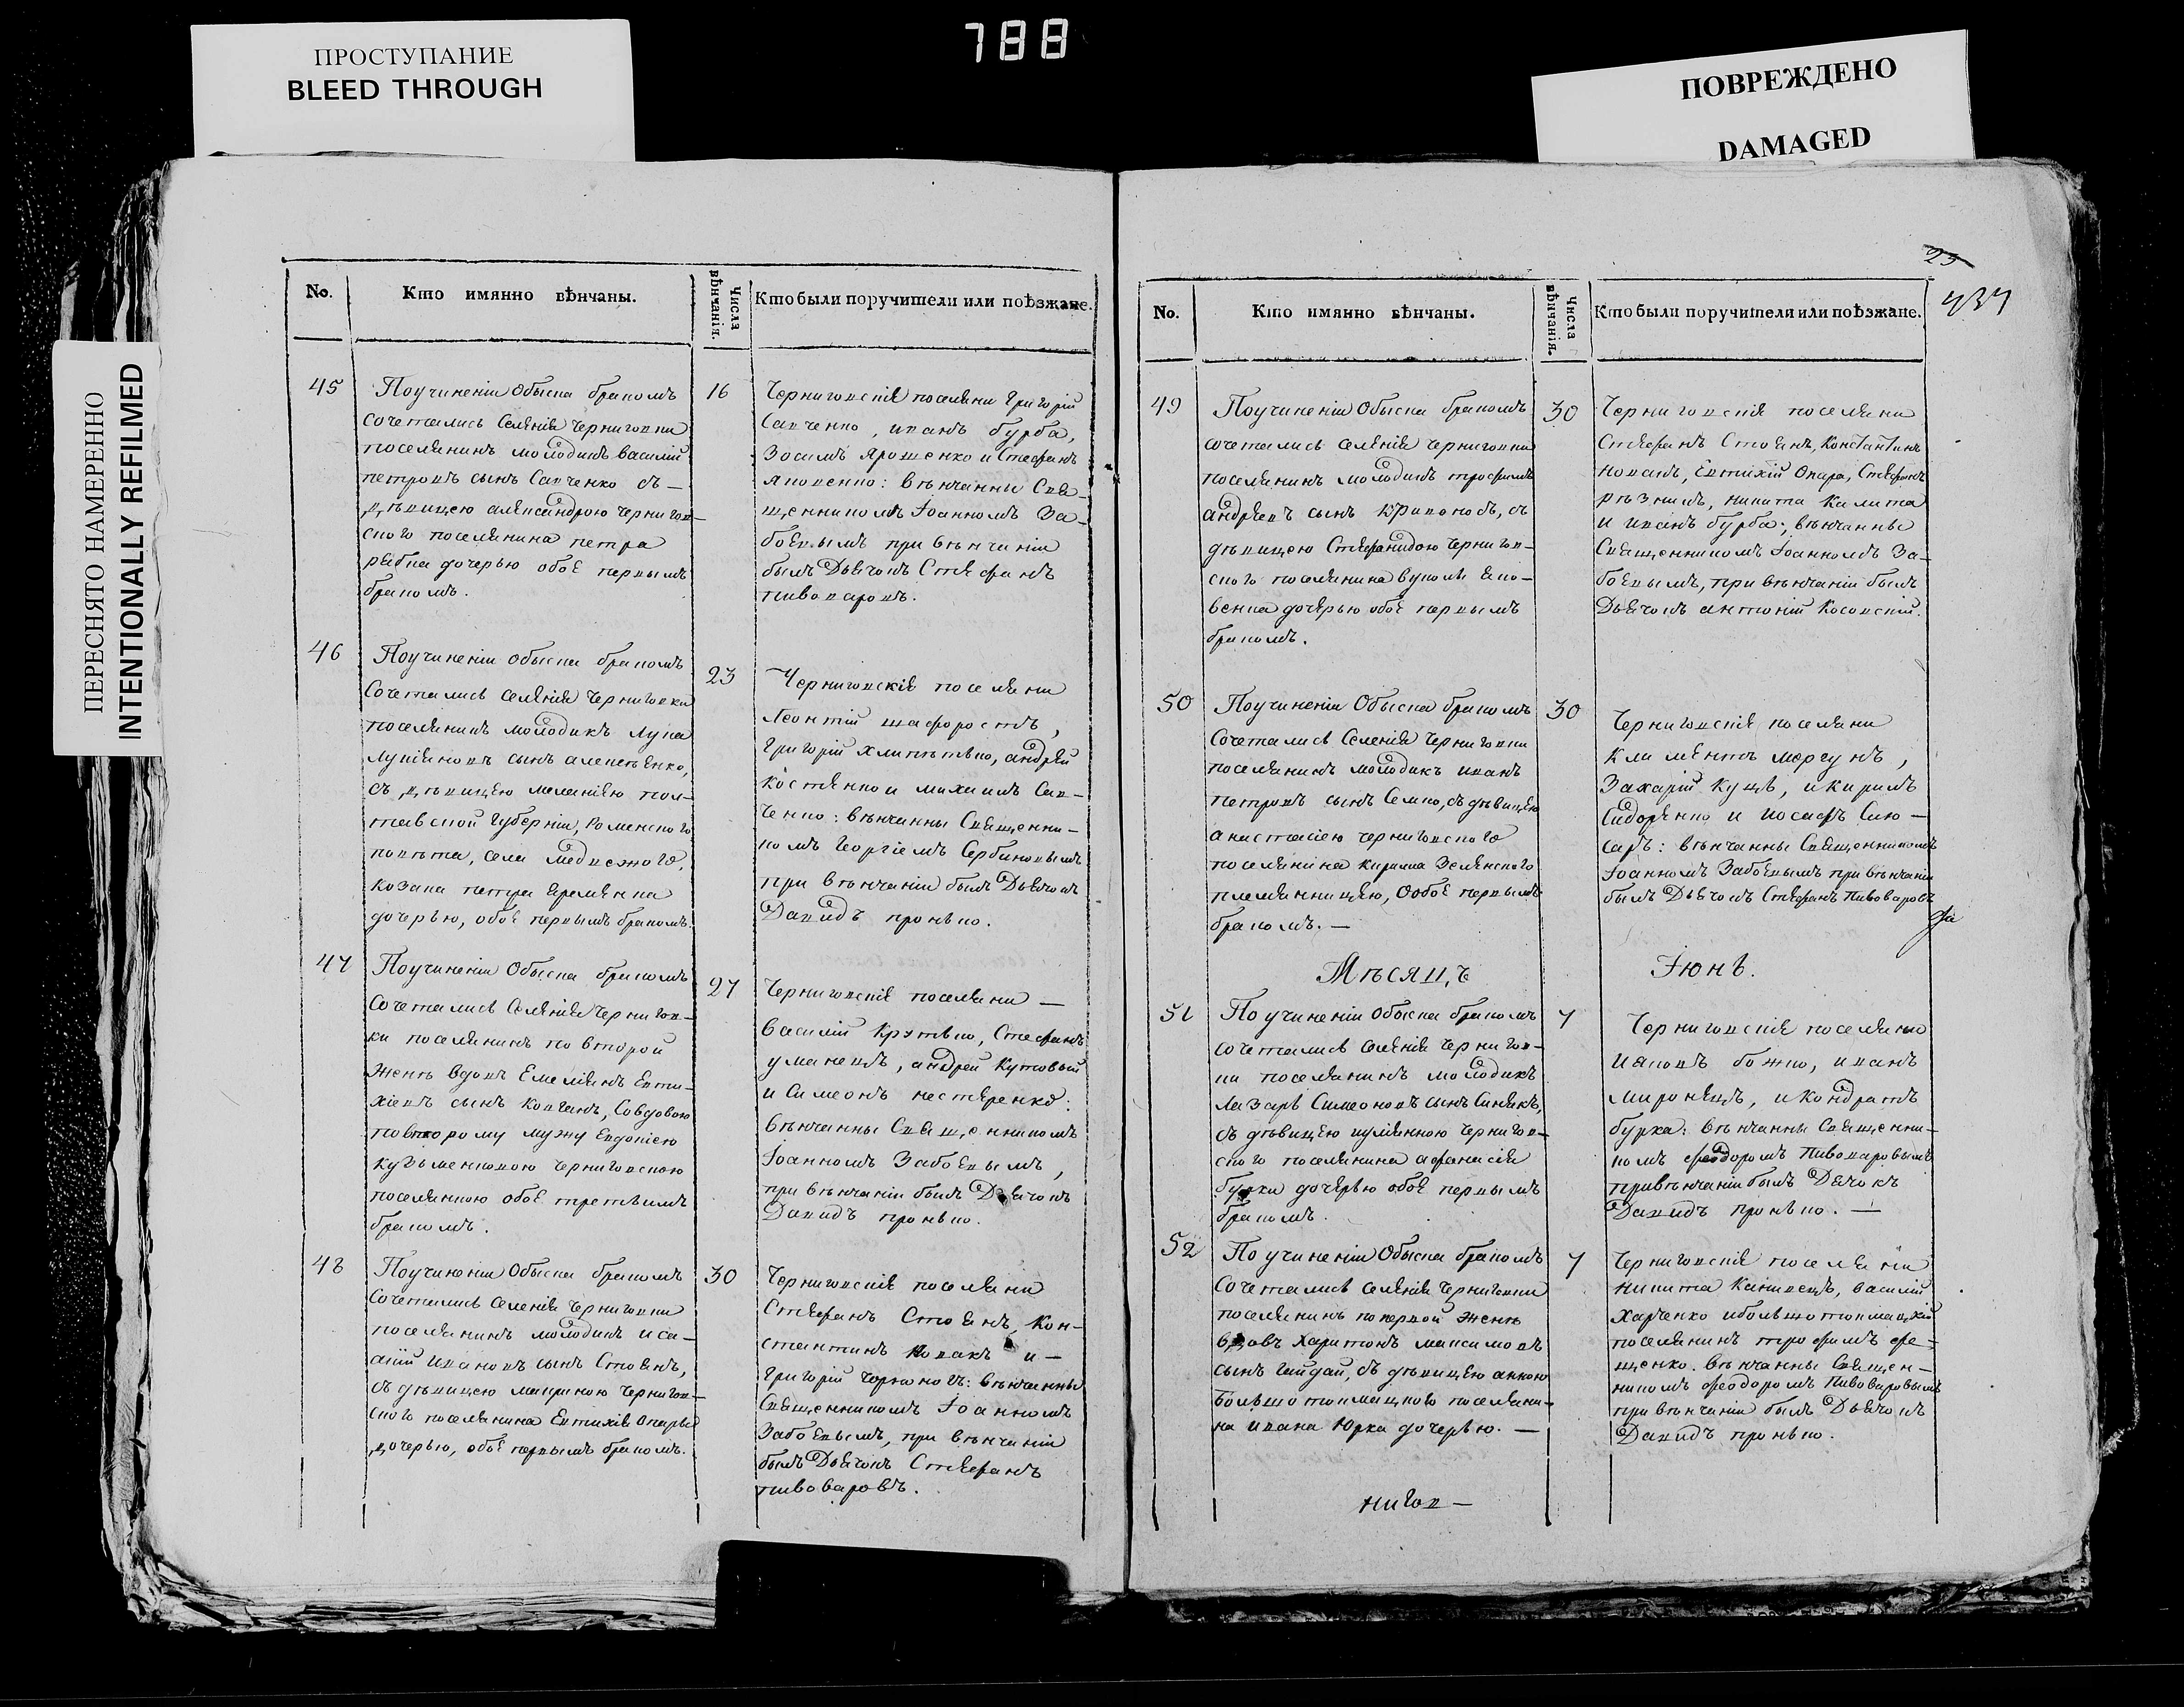 788
ПРОСТУПАНИЕ
BLEED THROUGH
ПОВРЕЖДЕНО
DAMAGED
ПЕРЕСНЯТО НАМЕРЕННО
INTENTIONALLY REFILMED
No.
Кто имянно вѣнчаны.
Числа вѣнчанія.
Кто были поручители или поѣзжане.
45
Поучиненіи Обыска бракомъ
сочетались Селенія Черниговки
поселянинъ молодикъ василій
петровъ сынъ Савченко съ —
дѣвицею александрою Чернигов-
ского поселянина петра
рябка дочерью обоє первымъ
бракомъ.
16
Черниговскія поселяни григорій
Савченко, иванъ бурба,
Зосимъ Ярошенко и Стефанъ
яковенко: вѣнчанны Свя-
щенникомъ Іоанномъ За-
боєвымъ при вѣнчаніи
былъ Дьячокъ Стефанъ
пивоваровъ.
46
Поучиненіи обыска бракомъ
Сочетались Селенія Черниговки
поселянинъ молодикъ Лука
лукіяновъ сынъ алексѣенко,
съ дѣвицею меланією пол-
тавской губерніи, Роменского
повѣта, села
козака петра яременка
дочерью, обоє первымъ бракомъ.
23
Черниговскія поселяни
Леонтій шафоростъ,
Григорій андрей
костенко и михаилъ Сав-
ченко: вѣнчанны Священни-
комъ Георгіемъ Сербиновымъ
при вѣнчаніи былъ Дьячокъ
Давидъ пронько.
47
Поучиненіи Обыска бракомъ
Сочетались Селенія Чернигов-
ки поселянинъ по второй
женѣ вдовъ Емеліянъ Евти-
хіевъ сынъ Ковганъ, Совдовою
повторому мужу Евдокією
кузьменковою Черниговскою
поселянкою обоє третьимъ
бракомъ.
27
Черниговскія поселяни —
василій Крутько, Стефанъ
уманецъ, андрей Кутовый
и Симеонъ нестеренко:
вѣнчанны Священникомъ
Іоанномъ Забоєвымъ,
при вѣнчаніи былъ Дьячокъ
Давидъ пронько.
48
Поучиненіи Обыска бракомъ
Сочетались Селенія Черниговки
поселянинъ молодикъ иса-
акій ивановъ сынъ Стоянъ,
съ дѣвицею макриною Чернигов-
ского поселянина Евтихія Опары
дочерью, обоє первымъ бракомъ.
30
Черниговскія поселяни
Стефанъ Стоянъ, Кон-
стантинъ Новакъ и —
григорій вѣнчанны
Священникомъ Іоанномъ
Забоєвымъ, при вѣнчаніи
былъ Дьячокъ Стефанъ
пивоваровъ.
23
437
No.
Кто имянно вѣнчаны.
Числа вѣнчанія.
Кто были поручители или поѣзжане.
49
Поучиненіи Обыска бракомъ
сочетались селенія черниговки
поселянинъ молодикъ трофимъ
андреевъ сынъ Кривоносъ, съ
дѣвицею Стефанидою Чернигов-
ского поселянина вуколы яко-
венка дочерью обоє первымъ
бракомъ.
30
Черниговскія поселяни
Стефанъ Стоянъ, Константинъ
Новакъ, Евтихій Опара, Стефанъ
рѣзникъ, никита Калита
и иванъ бурба; вѣнчанны
Священникомъ Іоанномъ За-
боєвымъ, при вѣнчаніи былъ
Дьячокъ антоній Косовскій.
50
Поучиненіи Обыска бракомъ
Сочетались Селенія Черниговки
поселянинъ молодикъ иванъ
петровъ сынъ Семко, съ дѣвицею
анастасією Черниговского
поселянина кирила Зеленского
племянницею, Ообоє первымъ
бракомъ. —
30
Черниговскія поселяни
Климентъ моргунъ,
Захарій Куцъ, и кирилъ
Сидоренко и иосифъ Слю-
сарь: вѣнчанны Священникомъ
Іоанномъ Забоєвымъ при вѣнчаніи
былъ Дьячокъ Стефанъ Пивоваровъ
Мѣсяцъ
Іюнь.
51
Поучиненіи Обыска бракомъ
сочетались селенія Чернигов-
ки поселянинъ молодикъ
Лазарь Симеоновъ сынъ Синякъ,
съ дѣвицею иуліянною Чернигов-
ского поселянина афанасія
бурки дочерью обоє первымъ
бракомъ.
7
Черниговскія поселяны
Иаковъ божко, иванъ
миронецъ, и кондратъ
бурка: вѣнчанны Священни-
комъ феодоромъ Пивоваровымъ
при вѣнчаніи былъ Дячокъ
Давидъ пронько. —
52
Поучиненіи Обыска бракомъ
Сочетались Селенія Черниговки
поселянинъ попервой женѣ
вдовъ Харитонъ максимовъ
сынъ гайдай, съ дѣвицею анною
большотокмацкого поселяни-
на ивана Юрка дочерью. —
7
Черниговскія поселяни
никита Каневецъ, василій
Харченко ибольшотокмацкій
поселянинъ трофимъ фе-
щенко. вѣнчанны Священ-
никомъ феодоромъ Пивоваровымъ
при вѣнчаніи былъ Дьячокъ
Давидъ пронько.
нигов —